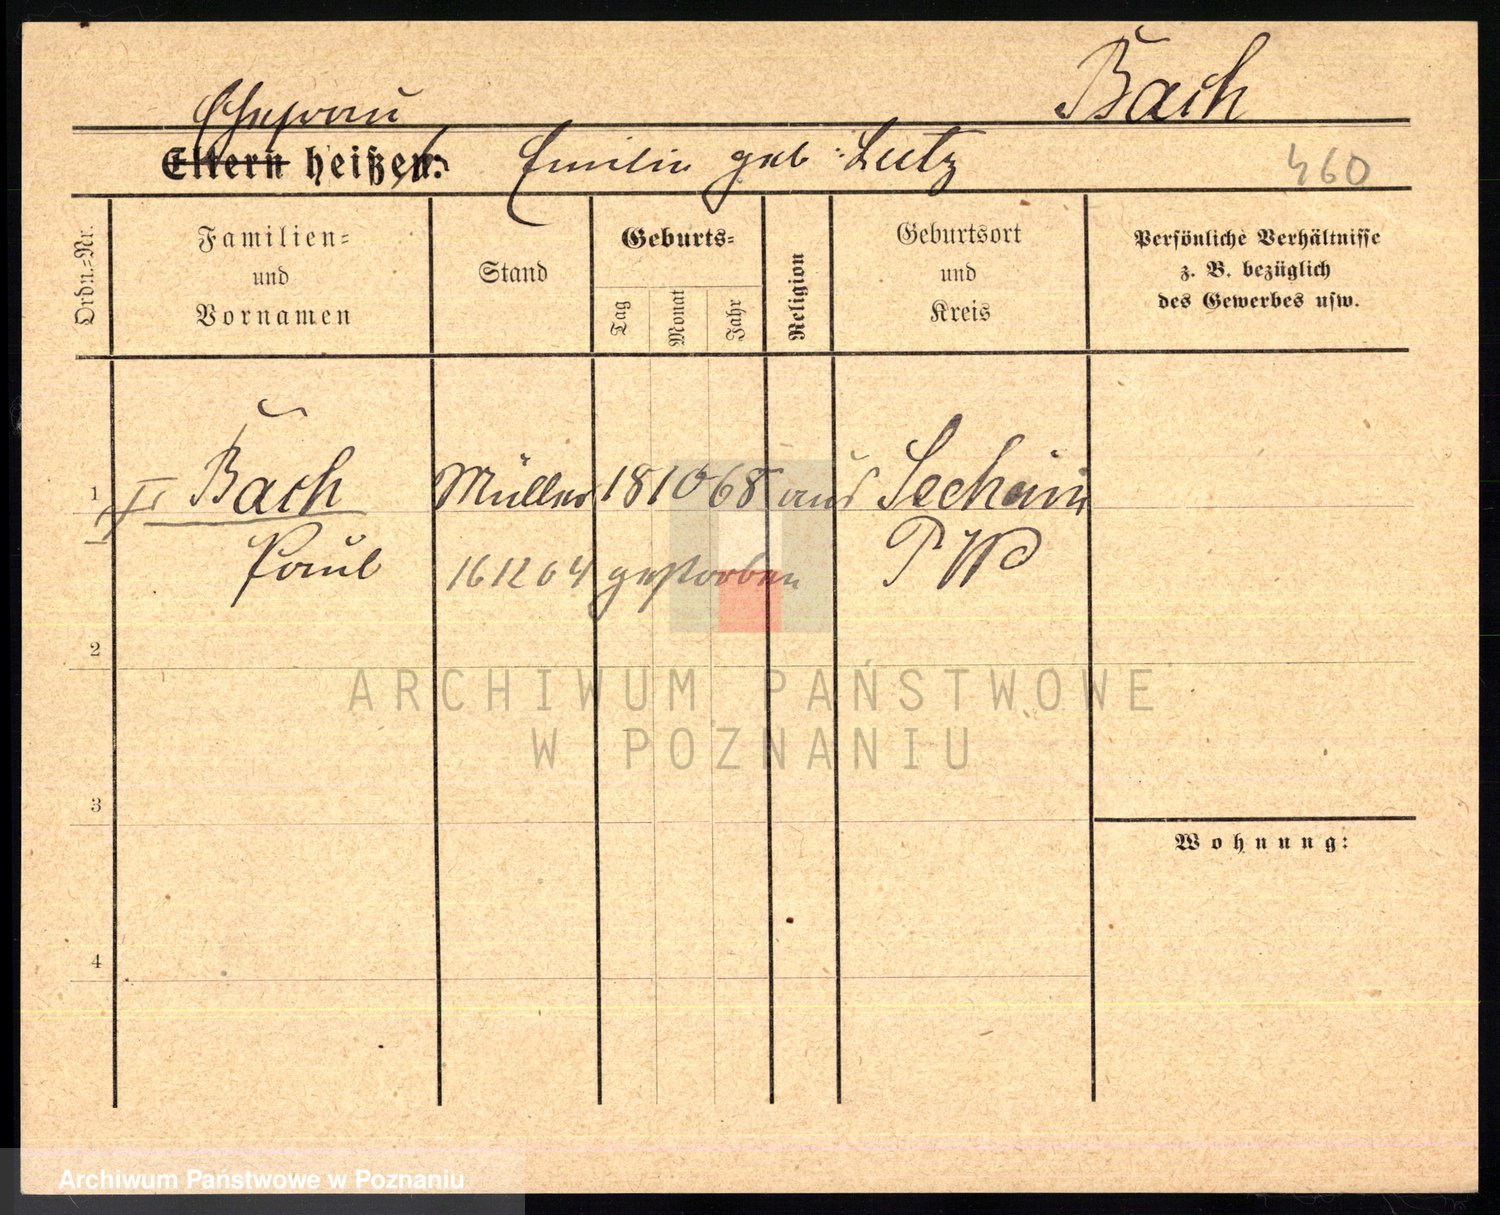 Bach
Ehefrau
Eltern heißen: Emilie geb: Lutz
460
Ordn.=Nr.
Familien=
und
Vornamen
Stand
Geburts=
Tag
Monat
Jahr
Religion
Geburtsort
und
Kreis
Persönliche Verhältnisse
z. B. bezüglich
des Gewerbes usw.
1 Bach Müller 18 10 68
Paul 16 12 04 gestorben
2
3
4
Wohnung:
ARCHIWUM PAŃSTWOWE
W POZNANIU
Archiwum Państwowe w Poznaniu